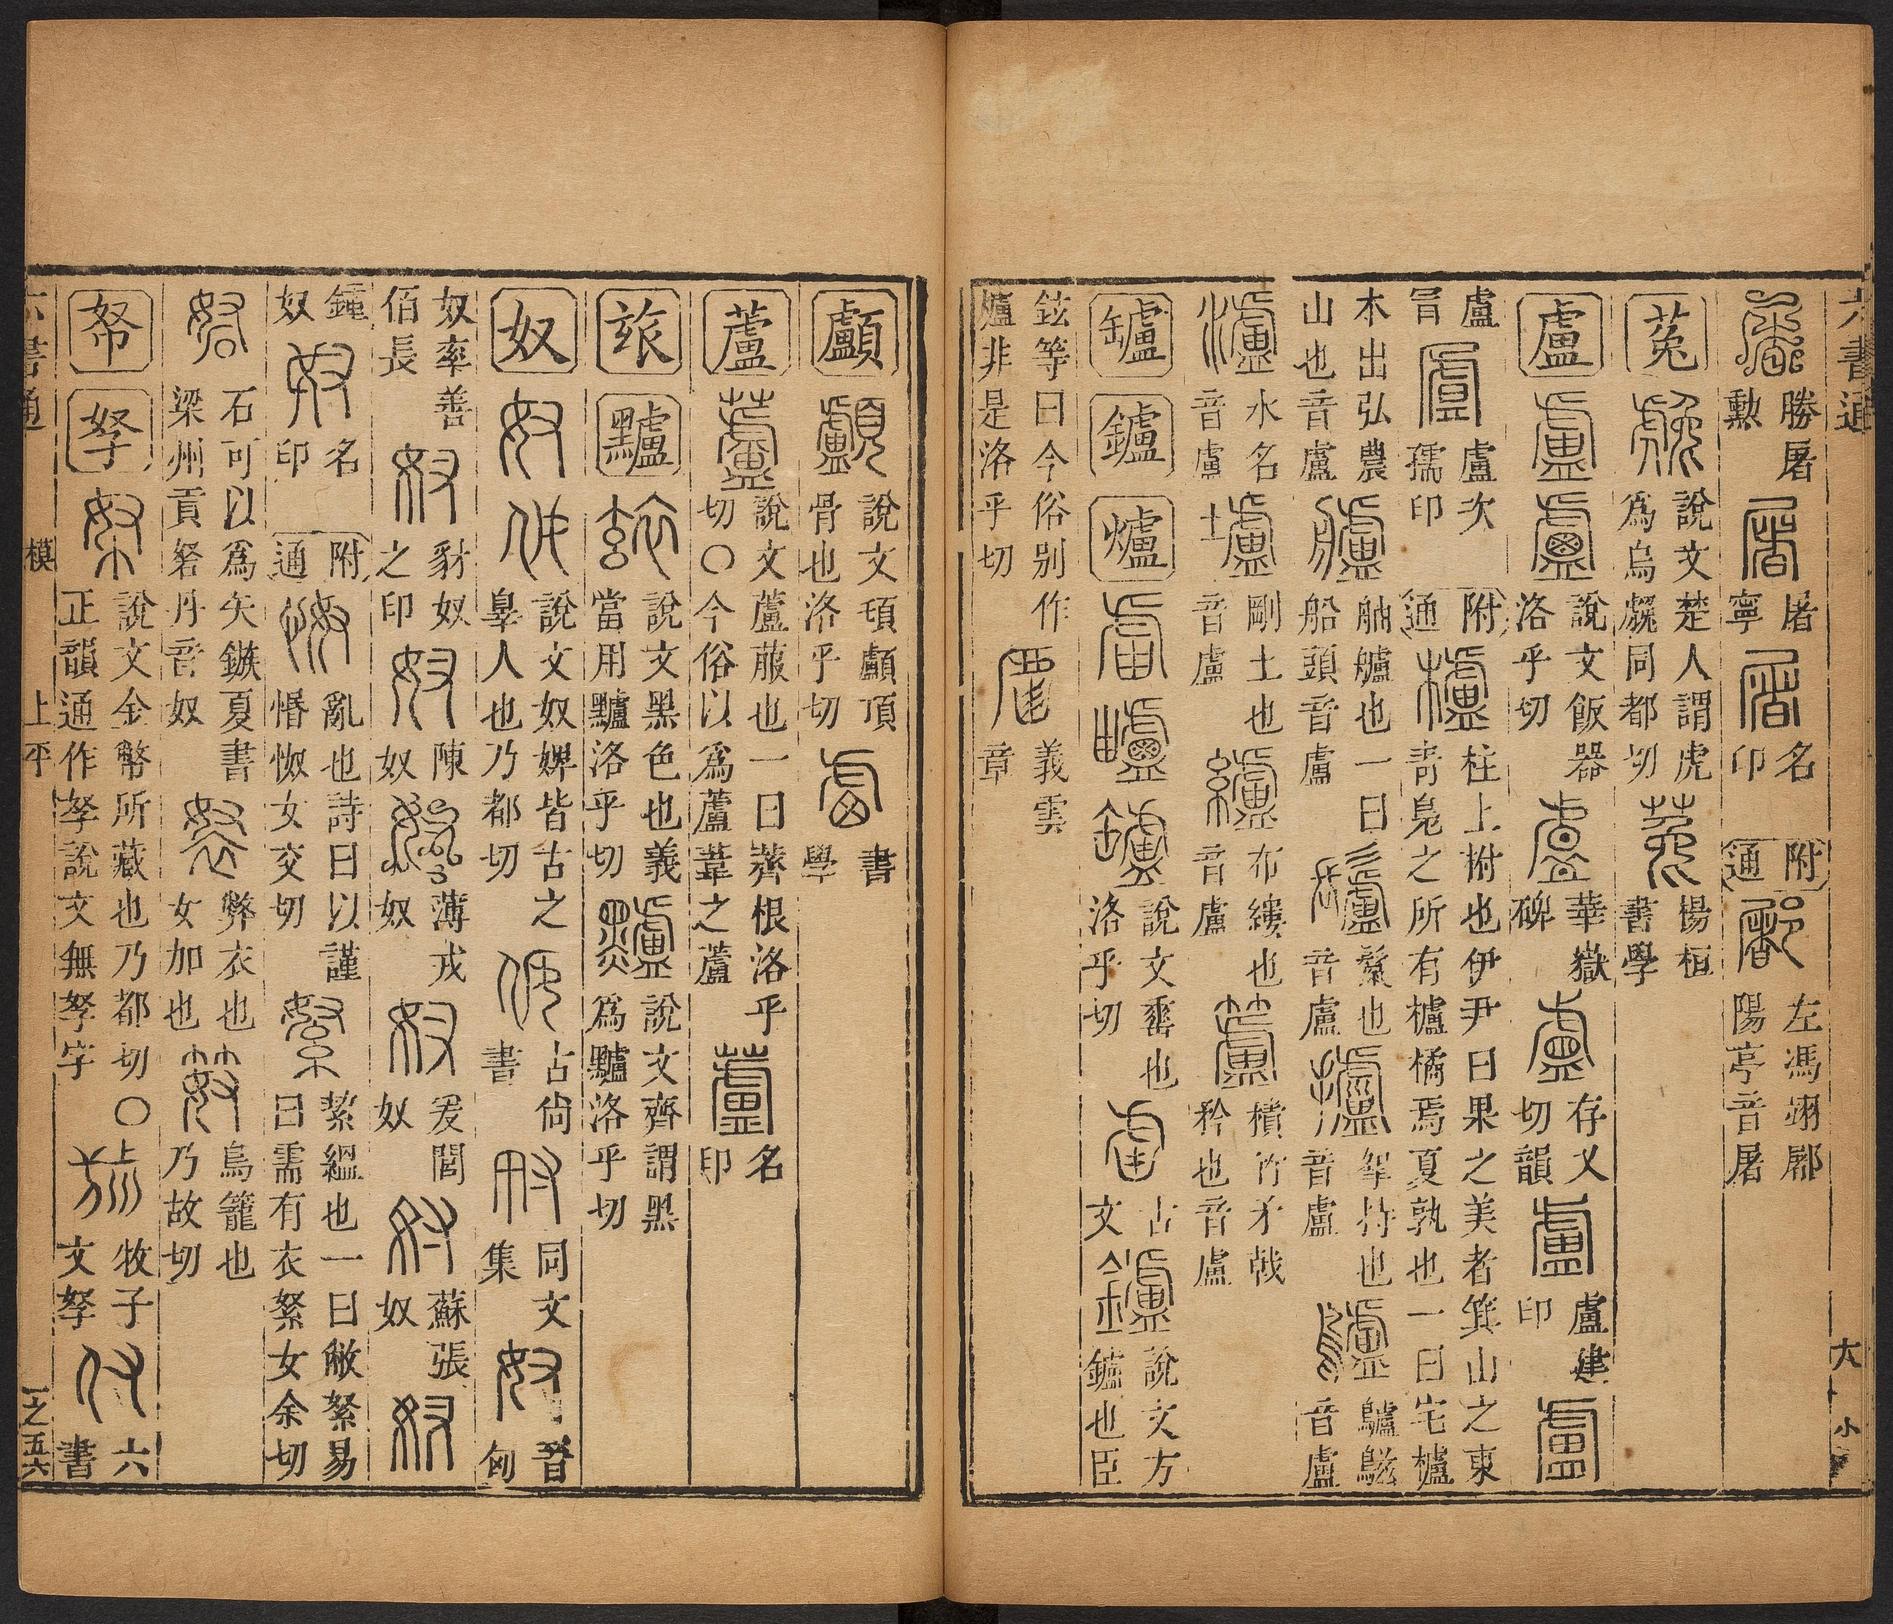 六書通
勝屠
勲
屠
寧
名
印
附
通
左馮翊郿
陽亭音屠
菟
說文楚人謂虎
爲烏䖘同都切
楊桓
書學
盧
說文飯器
洛乎切
華嶽
碑
存乂
切韻
盧建
印
盧
冐
盧次
孺印
附
通
柱上柎也伊尹曰果之美者箕山之東
靑鳧之所有櫨橘焉夏孰也一曰宅櫨
木出弘農
山也音盧
舳艫也一曰
船頭音盧
鬣也
音盧
挐持也
音盧
鸕鷀
音盧
水名
音盧
剛土也
音盧
布縷也
音盧
積竹矛戟
矜也音盧
𦉈
鑪
爐
說文罋也
洛乎切
古
文
說文方
鑪也臣
鉉等曰今俗别作
爐非是洛乎切
義雲
章
大
小
顱
說文頊顱頂
骨也洛乎切
書
學
蘆
說文蘆菔也一曰薺根洛乎
切〇今俗以爲蘆葦之蘆
名
印
玈
黸
說文黑色也義
當用黸洛乎切
說文齊謂黑
爲黸洛乎切
奴
說文奴婢皆古之
辠人也乃都切
古尙
書
同文
集
晉
匈
奴率善
佰長
豺奴
之印
陳
奴
薄戎
奴
爰閭
奴
蘇張
奴
鍾
奴
名
印
附
通
亂也詩曰以謹
惽怓女交切
絜縕也一曰敝絮易
曰需有衣絮女余切
石可以爲矢鏃夏書
梁州貢砮丹音奴
弊衣也
女加也
鳥籠也
乃故切
帑
孥
說文金幣所藏也乃都切〇
正韻通作孥說文無孥字
牧子
文孥
六
書
六書通
模
上平
一之五六